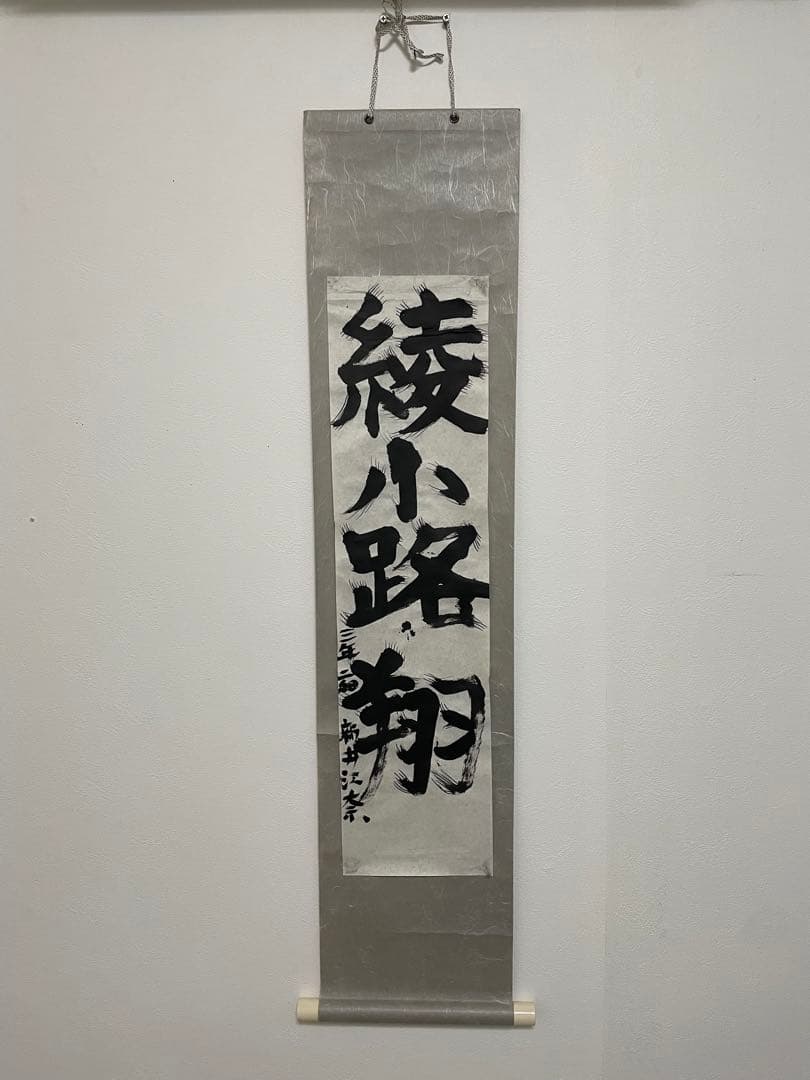 綾小路翔
三年二組 新井沢奈